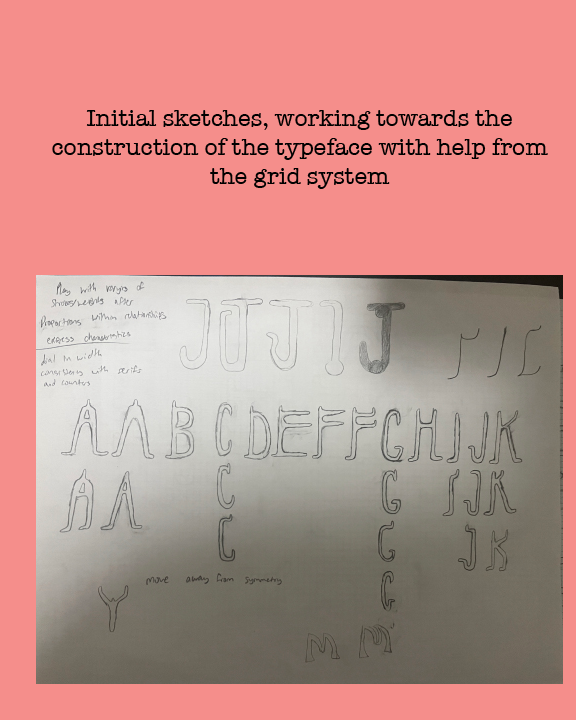 Initial sketches, working towards the
construction of the typeface with help from
the grid system
Play with ranges of
after
Proportions within relationships
express characteristics
dial in width
consistency with serifs
and counters
J J J J J
A A B C D E F F G H I J K
A A C G I J K
C G J K
G
move away from symmetry
Y
M M